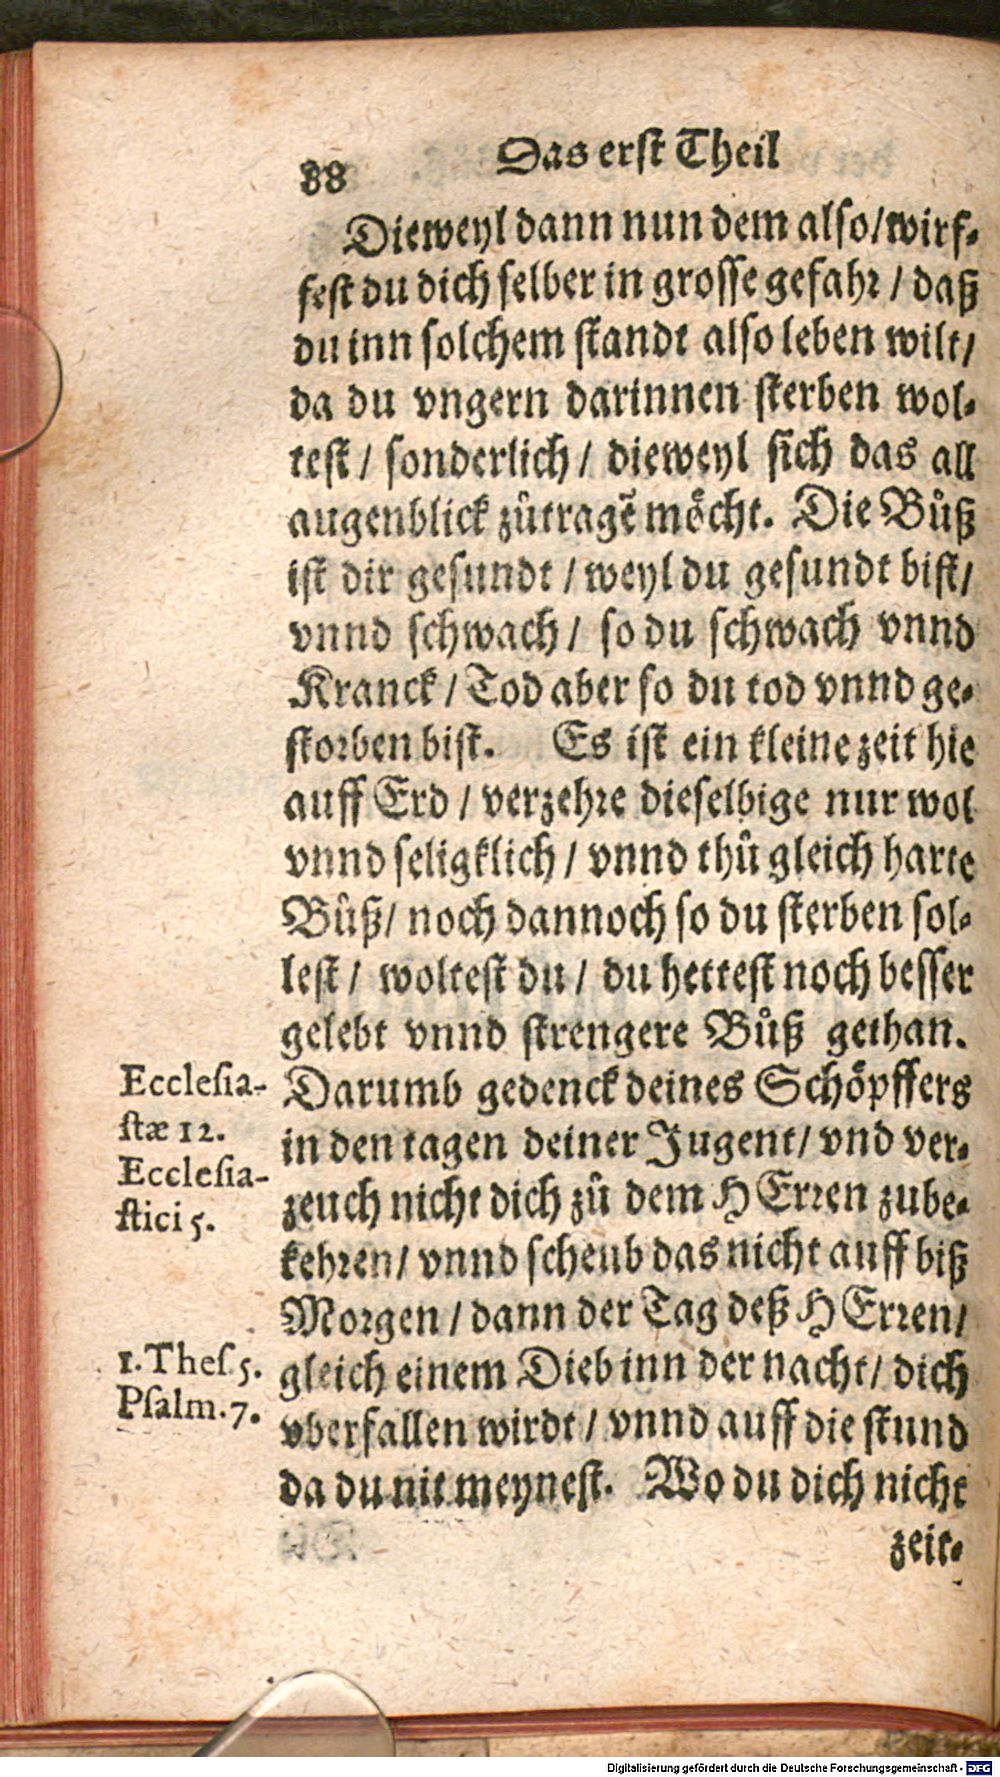 88 Das erst Theil
Dieweyl dann nun dem also/wirf-
fest du dich selber in grosse gefahr / daß
du inn solchem standt also leben wilt/
da du vngern darinnen sterben wol-
test / sonderlich / dieweyl sich das all
augenblick zůtragē möcht. Die Bůß
ist dir gesundt / weyl du gesundt bist/
vnnd schwach / so du schwach vnnd
Kranck / Tod aber so du tod vnnd ge-
storben bist. Es ist ein kleine zeit hie
auff Erd / verzehre dieselbige nur wol
vnnd seligklich / vnnd thů gleich harte
Bůß / noch dannoch so du sterben sol-
lest / woltest du / du hettest noch besser
gelebt vnnd strengere Bůß gethan.
Darumb gedenck deines Schöpffers
in den tagen deiner Jugent/ vnd ver-
zeuch nicht dich zů dem HErren zube-
kehren/ vnnd scheub das nicht auff biß
Morgen / dann der Tag deß HErren/
gleich einem Dieb inn der nacht/ dich
vberfallen wirdt / vnnd auff die stund
da du nit meynest. Wo du dich nicht
zeit-
Ecclesia-
stæ 12.
Ecclesia-
stici 5.
1. Thes 5.
Psalm. 7.
Digitalisierung gefördert durch die Deutsche Forschungsgemeinschaft - DFG